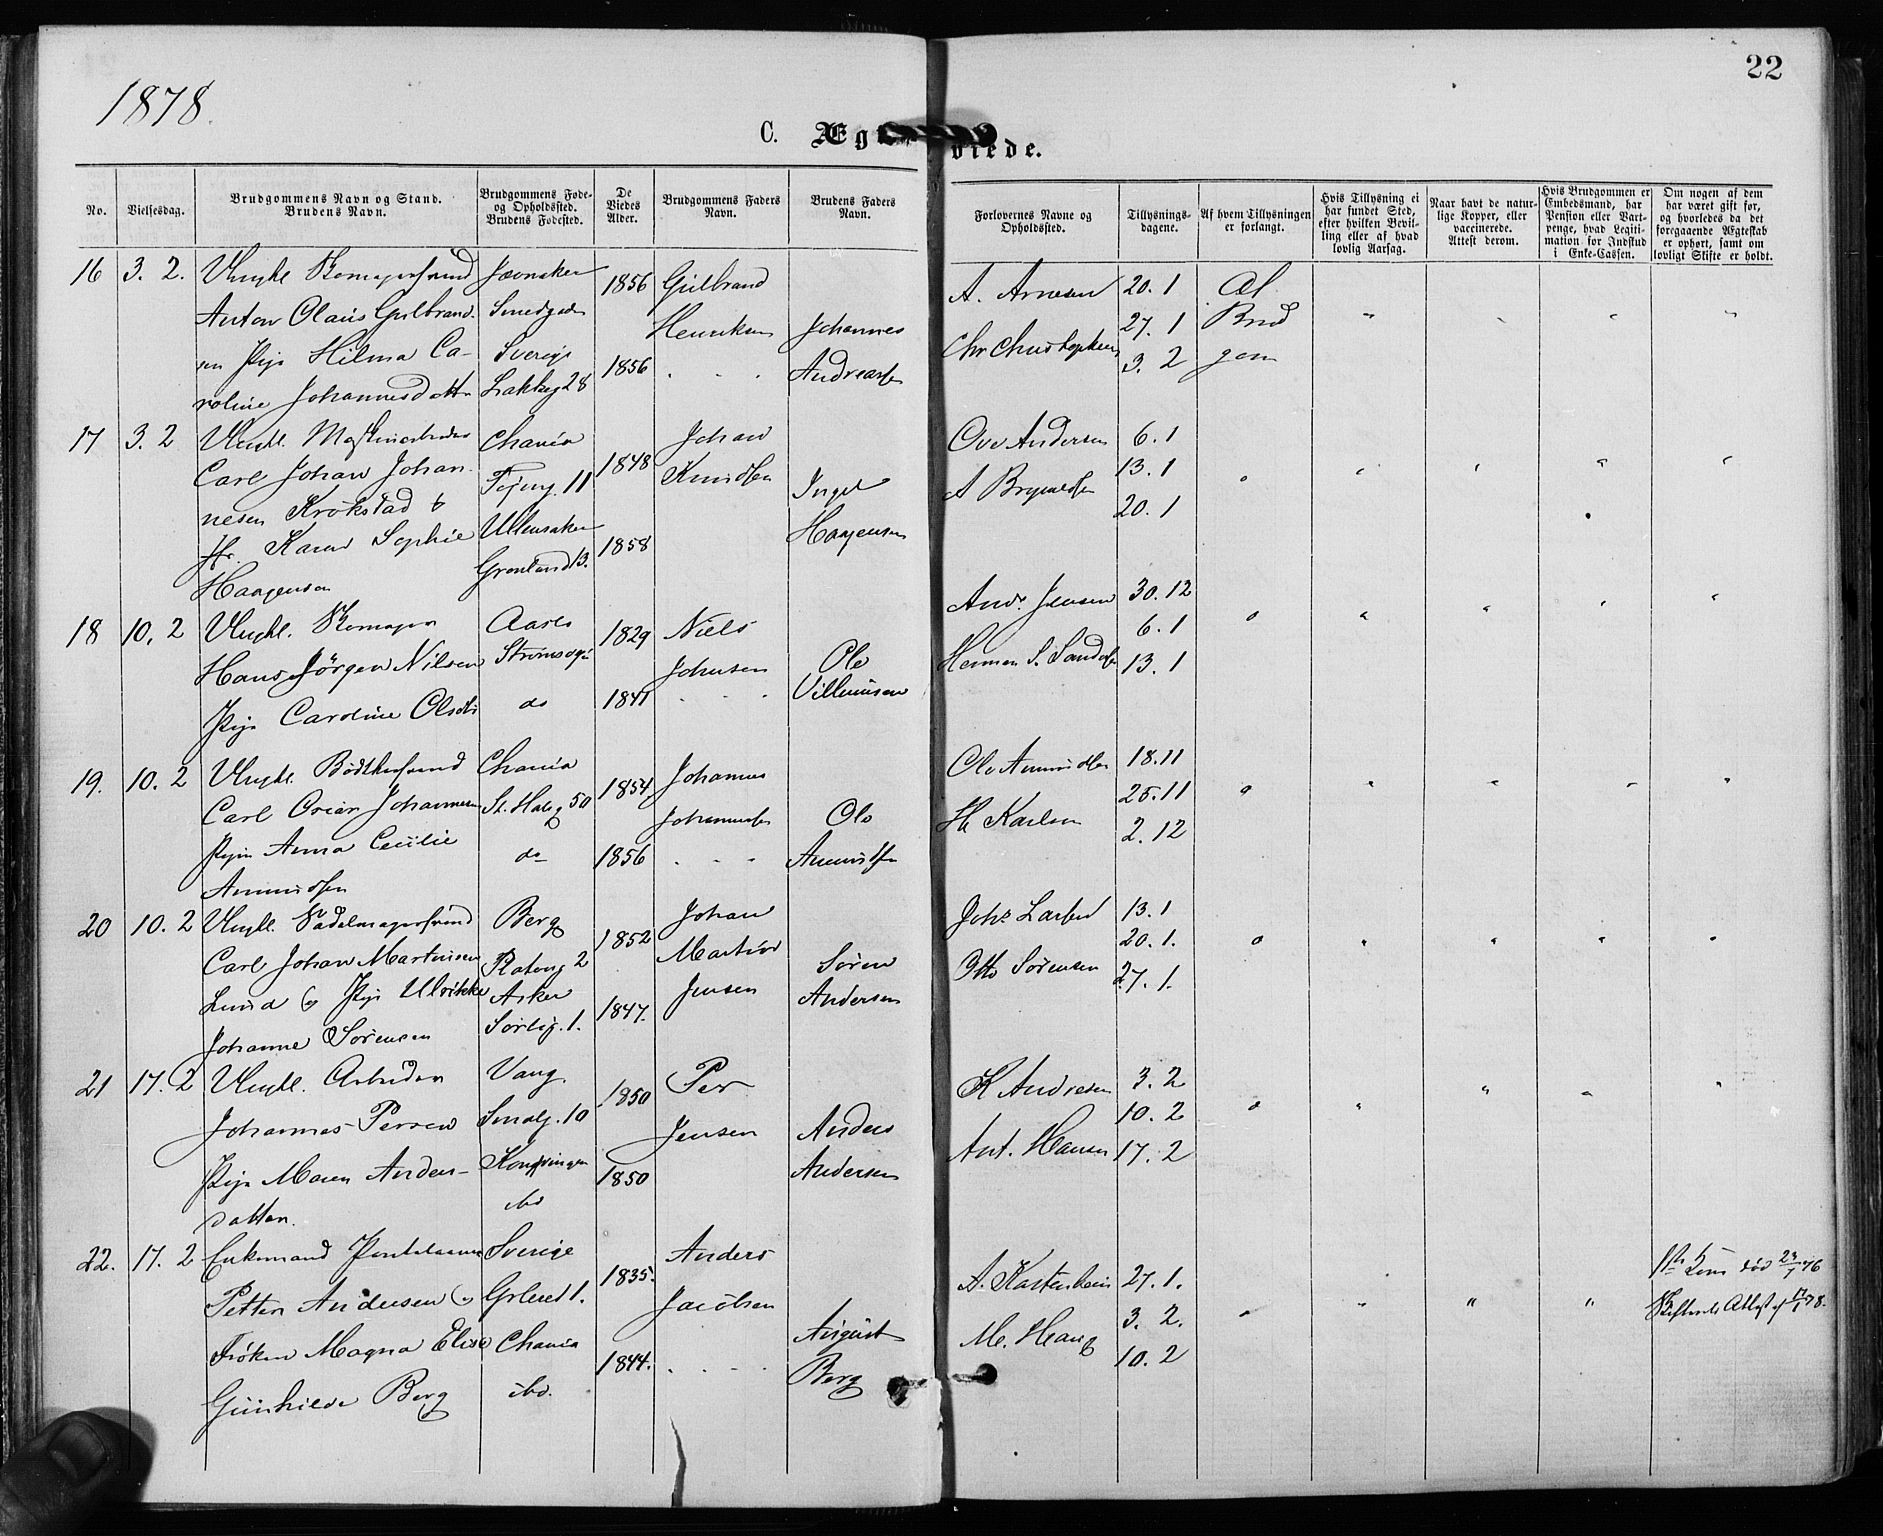 1878.
22
C. Æg
viede.
No.
Vielsesdag.
Brudgommens Navn og Stand.
Brudens Navn.
Brudgommens Føde-
og Opholdssted.
Brudens Fødested.
De
Viedes
Alder.
Brudgommens Faders
Navn.
Brudens Faders
Navn.
Forlovernes Navne og
Opholdssted.
Tillysnings-
dagene.
Af hvem Tillysningen
er forlangt.
Hvis Tillysning ei
har fundet Sted,
efter hvilken Bevil-
ling eller af hvad
lovlig Aarsag.
Naar havt de natur-
lige Kopper, eller
vaccinerede.
Attest derom.
Hvis Brudgommen er
Embedsmand, har
Pension eller Vart-
penge, hvad Legiti-
mation for Indskud
i Enke-Cassen.
Om nogen af dem
har været gift før,
og hvorledes da det
foregaaende Ægteskab
er ophørt, samt om
lovligt Skifte er holdt.
16 3. 2. Ungkl. Skomagersvend
Anton Olaus Gulbrand-
sen Pige Hilma Ca-
roline Johannesdatt
Jevnaker
Smedgaden
Sverige
Lakkeg 28
1856
1856
Gulbrand
Henriksen
Johannes
Andreasen
A. Arnesen
Chr Christophersen
20. 1
27. 1
3. 2
Af
Brud
gom
17 3. 2 Ungkl. Maskinarbeider
Carl Johan Johan-
nesen Krokstad &
Fr. Karen Sophie
Haagensen
Chania
Tøieng. 11
Ullensaker
Grønland 13.
1848
1858
Johan
Knudsen
Ingel
Haagensen
Ove Andersen
A Brynildsen
6. 1
13. 1
20. 1
18 10, 2 Ungkl. Skomager
Hans Jørgen Nilsen
Pige Caroline Olsdtr
Aas
Strømsveie
do
1829
1841
Niels
Johnsen
Ole
Villumsen
And. Jensen
Herman S. Sandersen
30. 12
6. 1
13. 1
19. 10. 2 Ungkl. Bødkersvend
Carl Oscar Johannesen
Pigen Anna Cecilie
Amundsen
Chania
St. Halv g 50
do
1854
1856
Johannes
Johannesen
Ole
Amundsen
Ole Amundsen
H Karlsen
18. 11
25. 11
2. 12
20 10. 2 Ungkl. Sadelmagersvend
Carl Johan Martinsen
Lund & Pige Ulrikke
Johanne Sørensen
Berg
Platoug 2
Asker
Sørlig. 1.
1852
1847.
Johan
Martin
Jensen
Søren
Andersen
Johs Larsen
Otto Sørensen
13. 1
20. 1.
27. 1.
21 17. 2 Ungkl. Arbeider
Johannes Persen
Pige Maren Anders-
datter.
Vang.
Smalg. 10
Kongsvinger
ibd
1850
1850
Per
Jensen
Anders
Andersen
K Andresen
Ant. Hansen
3. 2
10. 2
17. 2
22. 17. 2 Enkemand
Petter Andersen &
Frøken Magna Elise
Gunhilde Berg
Sverige
Grønl. 1.
Chania
ibd.
1835.
1844.
Anders
Jacobsen
August
Berg
A. Kastenhein
M. Haug
27. 1.
3. 2.
10. 2
død 24/1 76
Skifterets Attest af 17/1 78.